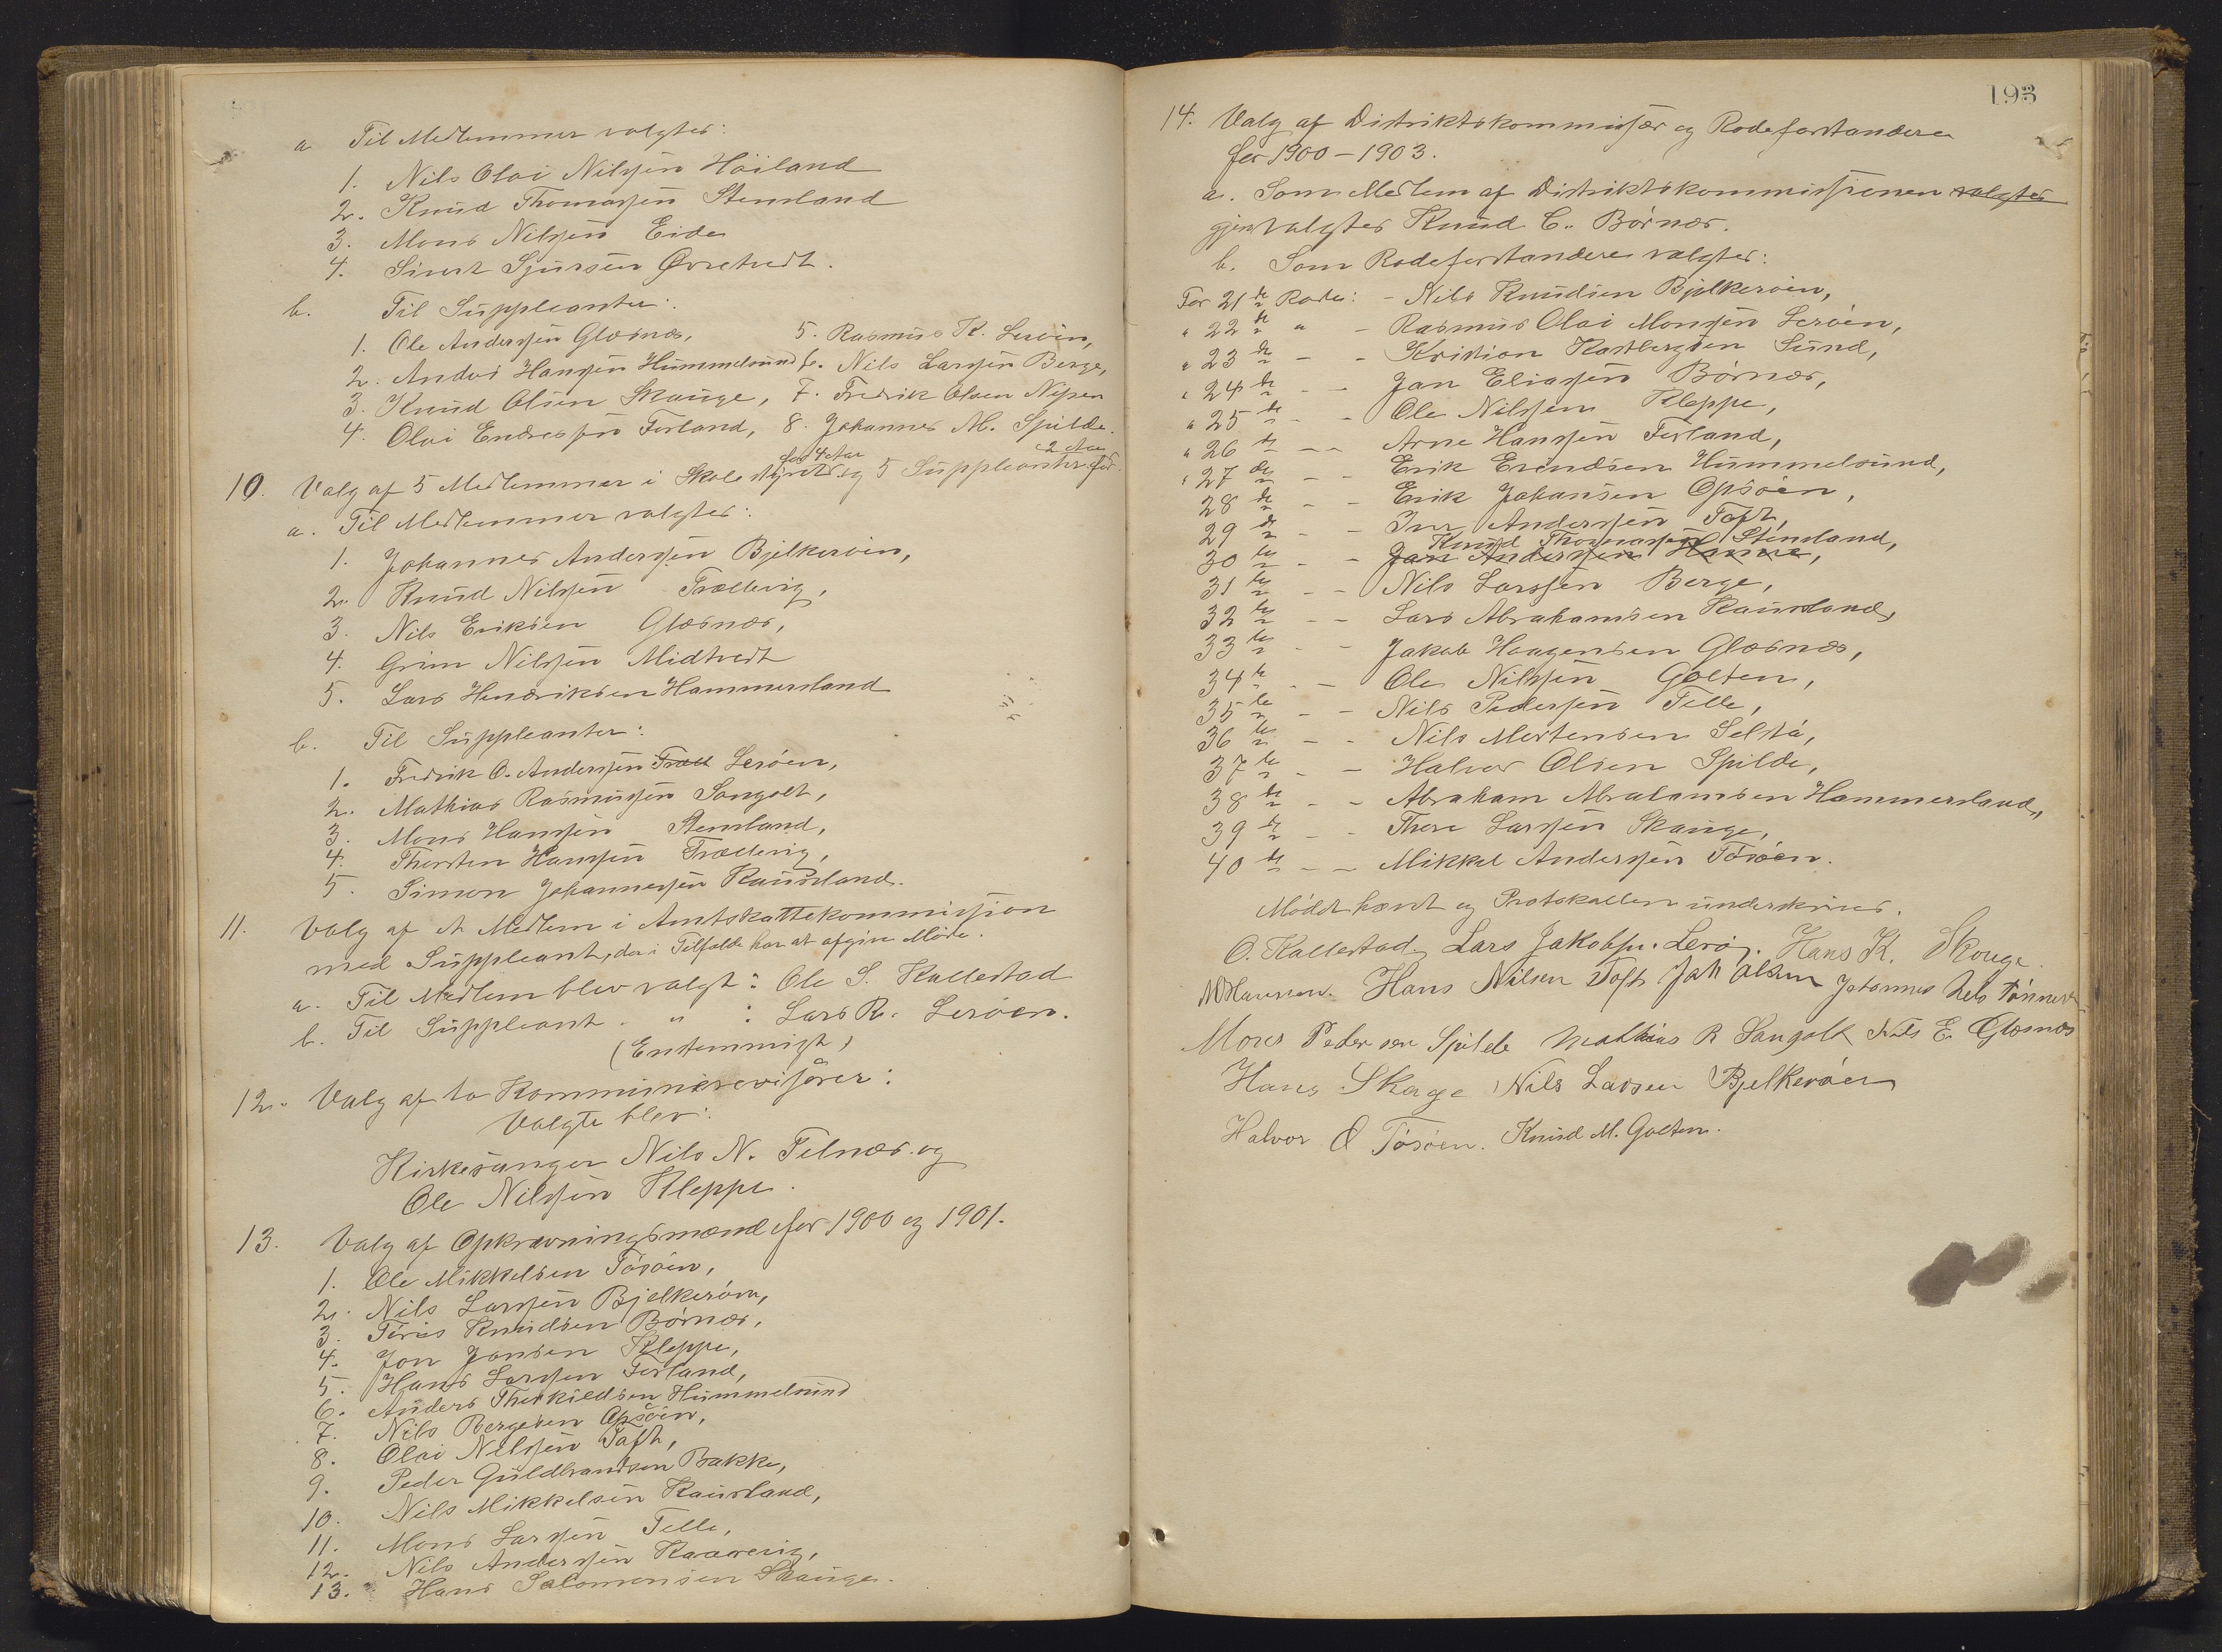 a Til Medlemmer valgtes:
1. Nils Olai Nilssen Höiland
2. Knud Thomassen Stensland
3. Mons Nilssen Eide
4. Sivert Sjursen Øvretvedt.
b. Til Suppleanter:
1. Ole Anderssen Glesnæs, 5. Rasmus K. Lerøen,
2. Andos Hanssen Hummelsund 6. Nils Larssen Berge,
3. Knud Olsen Skauge, 7. Fredrik Olsen Nipen
4. Olai Endresen Forland, 8. Johannes M. Spilde.
10. Valg af 5 Medlemmer i Skolestyret for 4 Aar og 5 Suppleanter for 2 Aar
a. Til Medlemmer valgtes:
1. Johannes Anderssen Bjelkerøen,
2. Knud Nilssen Trællevig,
3. Nils Eriksen Glesnæs,
4. Grim Nilssen Midtvedt
5. Lars Hendriksen Hammersland
b. Til Suppleanter:
1. Fredrik O. Anderssen Træll Lerøen,
2. Mathias Rasmussen Sangolt,
3. Mons Hanssen Stensland,
4. Thorsten Hanssen Trællevig,
5. Simon Johannessen Kausland.
11. Valg af et Medlem i Amtskattekommission
med Suppleant, der i Tilfælde har at afgive Møde.
a. Til Medlem blev valgt: Ole S. Kallestad
b. Til Suppleant " : Lars R. Lerøen.
(Enstemmigt)
12. Valg af to Kommunerevisorer:
Valgte blev:
Kirkesanger Nils N. Telnæs og
Ole Nilssen Kleppe.
13. Valg af Opkrævningsmænd for 1900 og 1901.
1. Ole Mikkelsen Tösöen,
2. Nils Larssen Bjelkeröen,
3. Knudsen Börnæs,
4. Jon Jonsen Kleppe,
5. Hans Larssen Forland,
6. Anders Thorkildsen Hummelsund
7. Nils Bergesen Opsöen,
8. Olai Nilssen Toft,
9. Peder Guldbrandsen Bakke,
10. Nils Mikkelsen Kausland,
11. Mons Larssen Telle,
12. Nils Anderssen
13. Hans Salomonsen Skauge.
193
14. Valg af Distriktskommissær og Rodeforstandere
for 1900-1903.
a. Som Medlem af Distriktskommissionen valgtes
gjenvalgtes Knud C. Börnæs.
b. Som Rodeforstandere valgtes:
For 21de Rode: - Nils Knudsen Bjelkeröen,
" 22de " - Rasmus Olai Monssen Leröen,
" 23de - - Kristian Karlbergsen Sund,
" 24de - - Jan Eliassen Börnæs,
" 25de - - Ole Nilssen Kleppe,
" 26de - - Arne Hanssen Forland,
" 27de - - Erik Erindsen Hummelsund,
28de - - Erik Johansen Opsöen,
29de - - Iver Anderssen Toft,
Knud Thomassen Stensland,
30te - - Jan Anderssen Hanne,
31te - - Nils Larssen Berge,
32te - - Lars Abrahamsen Kausland,
33te - - Jakob Haagensen Glesnæs,
34te - - Ole Nilssen Golten,
35te - - Nils Pederssen Telle,
36te - - Nils Mortensen Selstö,
37te - - Halvor Olsen Spilde,
38te - - Abraham Abrahamsen Hammersland,
39te - - Thore Larssen Skauge,
40de - - Mikkel Anderssen Tösöen.
Mödet hævet og Protokollen underskrives.
O. Kallestad, Lars Jakobsn. Lerö. Hans K. Skouge.
Hanssen. Hans Nilsen Toft Jak Olsen Johannes
Mons Pedersen Spilde Mathias R Sangolt Nils E. Glesnæs
Hans Skoge Nils Larsen Bjelkeröen
Halvor O Tösöen. Knud M. Golten.